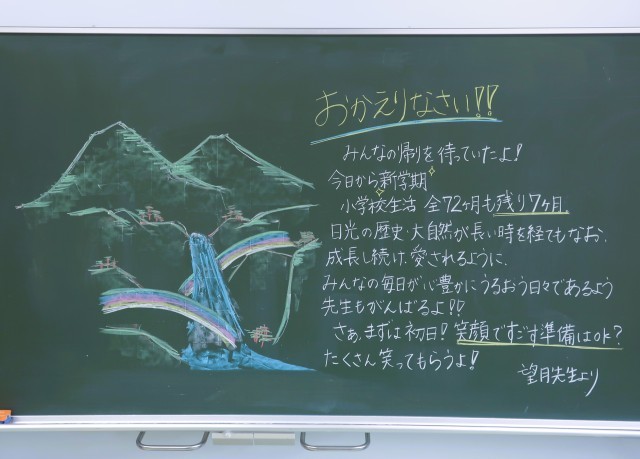 おかえりなさい!!
みんなの帰りを待っていたよ!
今日から新学期
小学校生活 全72ヶ月も残り7ヶ月。
日光の歴史、大自然が長い時を経てもなお、
成長し続け、愛されるように、
みんなの毎日が心豊かにうるおう日々であるよう
先生もがんばるよ!!
さぁ、まずは初日!笑顔ですごす準備はOK?
たくさん笑ってもらうよ!
望月先生より